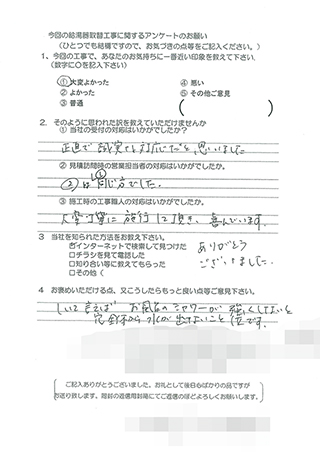 今回の給湯器取替工事に関するアンケートのお願い
（ひとつでも結構ですので、お気づきの点等をご記入ください。）
1、今回の工事で、あなたのお気持ちに一番近い印象を教えて下さい。
（数字に〇を記入下さい）
①大変よかった ④悪い
②よかった ⑤その他ご意見
③普通 （ ）
2. そのように思われた訳を教えていただけませんか
①当社の受付の対応はいかがでしたか？
正直で誠実な対応だと思いました
②見積訪問時の営業担当者の対応はいかがでしたか。
②は①と同じ方でした。
③施工時の工事職人の対応はいかがでしたか。
大変丁寧に施行して頂き、喜んでいます。
3 当社を知られた方法をお教え下さい。
☑インターネットで検索して見つけた
□チラシを見て電話した
□知り合い等に教えてもらった
□その他（
ありがとう
ございました。
4 お褒めいただける点、又こうしたらもっと良い点等ご意見下さい。
しいて言えば お風呂のシャワーが 強くしないと
水が出ないこと 位です。
ご記入ありがとうございました。お礼として後日心ばかりの品ですが
お送り致します。同封の返信用封筒にてご返信のほどよろしくお願いします。